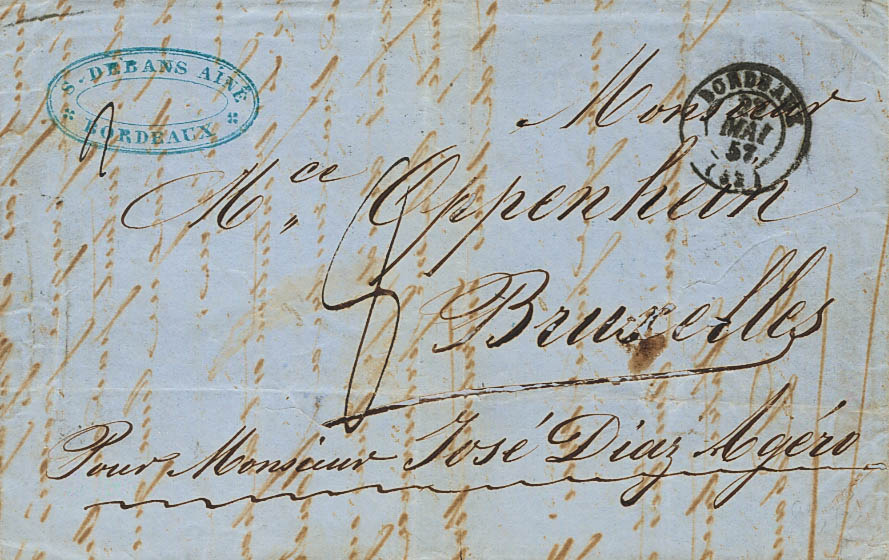 S. DEBANS AINÉ
BORDEAUX
BORDEAUX
22
MAI
57
Monsieur
Mce Oppenheim
Bruxelles
Pour Monsieur José Diaz Agéro